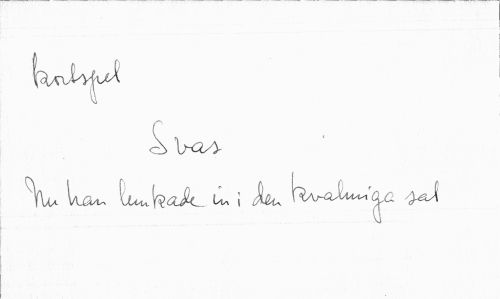 Kortspel
Svas
Nu han lunkade in i den kvalmiga sal